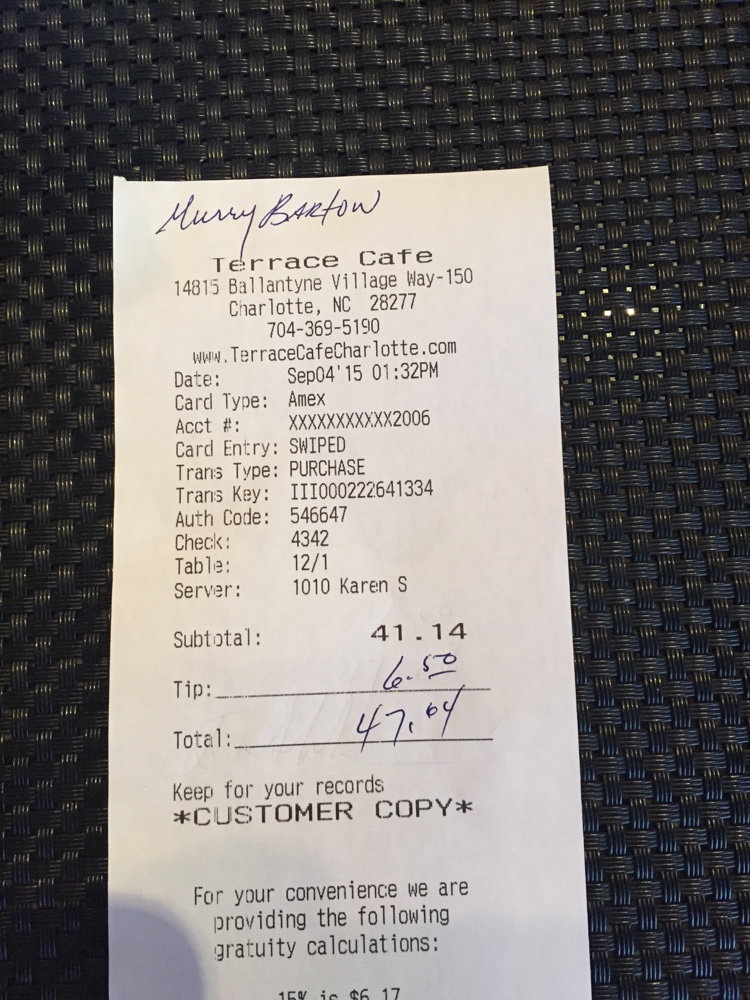 Murry BARTOW
Terrace Cafe
14815 Ballantyne Village Way-150
Charlotte, NC 28277
704-369-5190
www.TerraceCafeCharlotte.com
Date: Sep04'15 01:32PM
Card Type: Amex
Acct #: XXXXXXXXXXX2006
Card Entry: SWIPED
Trans Type: PURCHASE
Trans Key: III000222641334
Auth Code: 546647
Check: 4342
Table: 12/1
Server: 1010 Karen S
Subtotal: 41.14
Tip: 6.50
Total: 47.64
Keep for your records
*CUSTOMER COPY*
For your convenience we are
providing the following
gratuity calculations:
15% is $6.17